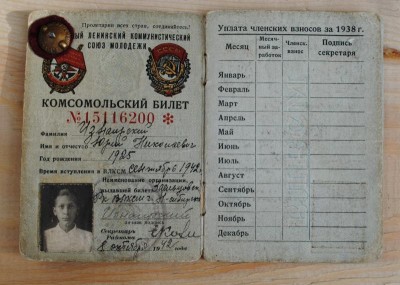 Пролетарии всех стран, соединяйтесь!
ЛЕНИНСКИЙ КОММУНИСТИЧЕСКИЙ
СОЮЗ МОЛОДЕЖИ
КОМСОМОЛЬСКИЙ БИЛЕТ
№15116200 *
Фамилия
Имя и отчество Юрий Николаевич
Год рождения 1925
Время вступления в ВЛКСМ Сентябрь 1942
Наименование организации,
выдавшей билет
РК ВЛКСМ
Личная подпись
Секретарь
Райкома
8 октября 1942
Уплата членских взносов за 1938 г.
Месяц
Месяч-
ный за-
работок
Членск.
взнос
Подпись
секретаря
Январь
Февраль
Март
Апрель
Май
Июнь
Июль
Август
Сентябрь
Октябрь
Ноябрь
Декабрь